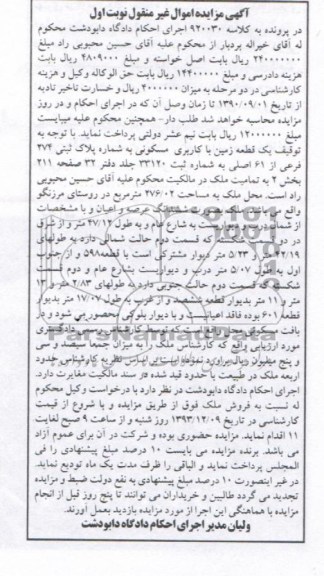 آگهی مزایده اموال غیر منقول نوبت اول
در پرونده به کلاسه ۹۲۰۰۳۰ اجرای احکام دادگاه دابودشت محکوم
له آقای خیراله پردیار از محکوم علیه آقای حسین محبوبی راد مبلغ
۲۴۰۰۰۰۰۰۰ ریال بابت اصل خواسته و مبلغ ۴۸۰۹۰۰۰ ریال بابت
هزینه دادرسی و مبلغ ۱۴۴۰۰۰۰۰ ریال بابت حق الوکاله وکیل و هزینه
کارشناسی در دو مرحله به میزان ۴۰۰۰۰۰۰ ریال و خسارت تاخیر تادیه
از تاریخ ۱۳۹۰/۰۹/۰۱ تا زمان وصل آن که در اجرای احکام و در روز
مزایده محاسبه خواهد شد طلب دار- همچنین محکوم علیه میبایست
مبلغ ۱۲۰۰۰۰۰۰ ریال بابت نیم عشر دولتی پرداخت نماید. با توجه به
توقیف یک قطعه زمین با کاربری مسکونی به شماره پلاک ثبتی ۲۷۴
فرعی از ۶۱ اصلی به شماره ثبت ۳۳۱۲۰ جلد دفتر ۳۲ صفحه ۲۱۱
بخش ۲ به تمامیت ملک در مالکیت محکوم علیه آقای حسین محبوبی
راد است. محل ملک به مساحت ۲۷۶/۰۲ مترمربع در روستای مرزنگو
واقع می باشد ششدانگ عرصه و اعیان و با مشخصات
از شمال درب و دیواریست به شارع عام و به طول ۴۷/۱۲ متر و از شرق
در دو قسمت شکسته که قسمت دوم حالت شمالی دارد به طولهای
۴۲/۱۹ متر ۵/۲۳ متر دیوار مشترکی است با قطعه ۵۹۸ و از جنوب
اول به طول ۵/۰۷ متر درب و دیواریست بشارع عام و دوم قسمت
شکسته که قسمت دوم حالت جنوبی دارد به طولهای ۲/۸۳ متر و ۱۳
متر و ۱۱ متر بدیوار قطعه ششصد و از غرب به طول ۱۷/۰۷ متر بدیوار
قطعه ۶۰۱ بوده فاقد اعیانیست و با دیوار بلوکی محصور می شود و در
بافت مسکونی مجاز واقع است که توسط کارشناس رسمی دادگستری
مورد ارزیابی واقع که کارشناس ملک را به میزان جمعا سیصد و سی
و پنج میلیون ریال برآورد نموده است بر اساس نظریه کارشناس حدود
اربعه ملک در طبیعت با حدود قید شده در سند مالکیت مغایرت دارد.
اجرای احکام دادگاه دابودشت در نظر دارد با درخواست وکیل محکوم
له نسبت به فروش ملک فوق از طریق مزایده و با شروع از قیمت
کارشناسی در تاریخ ۱۳۹۳/۱۲/۰۹ روز شنبه و از ساعت ۹ صبح لغایت
۱۱ اقدام نماید. مزایده حضوری بوده و شرکت در آن برای عموم آزاد
می باشد. برنده مزایده می بایست ۱۰ درصد مبلغ پیشنهادی را فی
المجلس پرداخت نماید و الباقی را ظرف مدت یک ماه تودیع نماید.
در غیر اینصورت ۱۰ درصد مبلغ پیشنهادی به نفع دولت ضبط و مزایده
تجدید می گردد طالبین و خریداران می توانند تا پنج روز قبل از انجام
مزایده با هماهنگی این اجرا از مورد مزایده بازدید بعمل آورند.
ولیان مدیر اجرای احکام دادگاه دابودشت